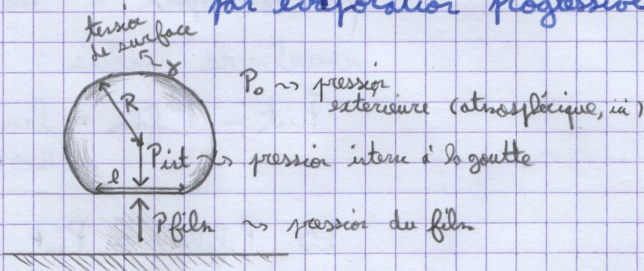 par évaporation progressive
tension
de surface
γ
R
P₀ ⇝ pression
extérieure (atmosphérique, ici)
Pint ⇝ pression interne à la goutte
l
Pfilm ⇝ pression du film